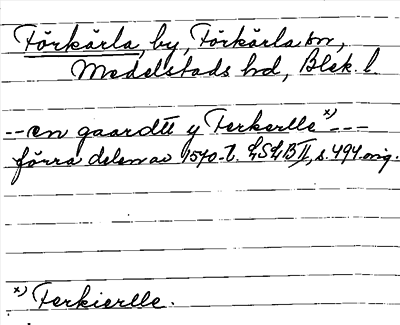 Förkärla, by, Förkärla sn,
Medelstads hd, Blek. l.
-- en gaardtt y Ferkerlle x) ---
förra delen av 1570-t. LSLB II, s. 494. orig.
x) Ferkierlle.